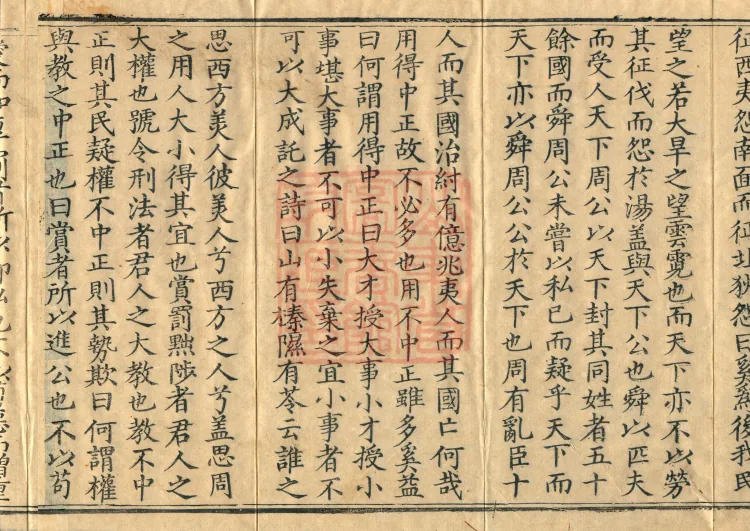 征西夷怨南面而征北狄怨曰奚爲後我民
望之若大旱之望雲霓也而天下亦不以勞
其征伐而怨於湯盖與天下公也舜以匹夫
而受人天下周公以天下封其同姓者五十
餘國而舜周公未嘗以私已而疑乎天下而
天下亦以舜周公公於天下也周有亂臣十
人而其國治紂有億兆夷人而其國亡何哉
用得中正故不必多也用不中正雖多奚益
曰何謂用得中正曰大才授大事小才授小
事堪大事者不可以小失棄之宜小事者不
可以大成託之詩曰山有榛隰有苓云誰之
思西方美人彼美人兮西方之人兮盖思周
之用人大小得其宜也賞罰黜陟者君人之
大權也號令刑法者君人之大教也教不中
正則其民疑權不中正則其勢欺曰何謂權
與教之中正也曰賞者所以進公也不以苟